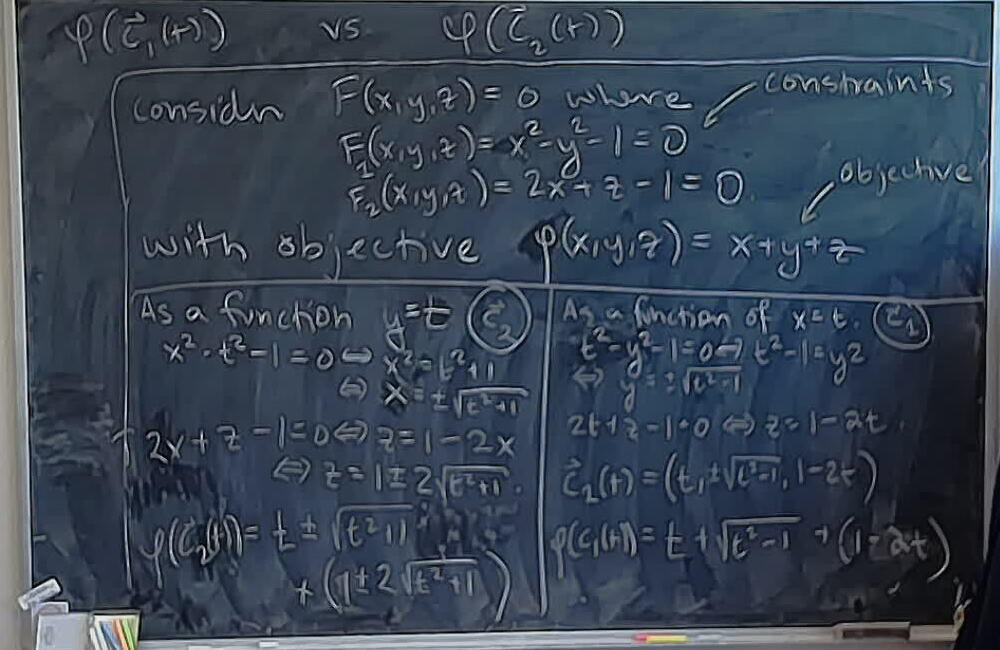 φ(c⃗₁(t)) vs. φ(c⃗₂(t))
considn F(x,y,z) = 0 where
constraints
F₁(x,y,z) = x²-y²-1 = 0
F₂(x,y,z) = 2x+z-1 = 0.
objective
with objective φ(x,y,z) = x+y+z
As a function y=t c⃗₂
x²-t²-1=0 ⇔ x²=t²+1
⇔ x=±√(t²+1)
2x+z-1=0 ⇔ z=1-2x
⇔ z=1±2√(t²+1).
φ(c⃗₂(t))= t ± √(t²+1)
+ (1±2√(t²+1))
As a function of x=t. c⃗₁
t²-y²-1=0 ⇔ t²-1=y²
⇔ y=±√(t²-1)
2t+z-1=0 ⇔ z=1-2t.
c⃗₂(t)=(t,±√(t²-1),1-2t)
φ(c₁(t))= t+√(t²-1) +(1-2t)